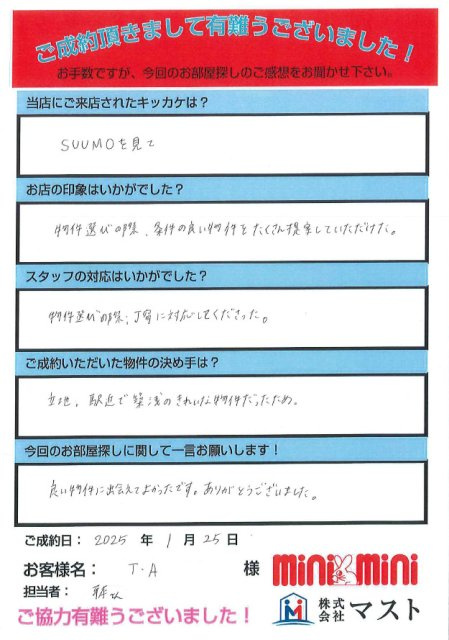 ご成約頂きまして有難うございました！
お手数ですが、今回のお部屋探しのご感想をお聞かせ下さい。
当店にご来店されたキッカケは？
SUUMOを見て
お店の印象はいかがでした？
物件選びの際、条件の良い物件をたくさん提案していただけた。
スタッフの対応はいかがでした？
物件選びの際、丁寧に対応してくださった。
ご成約いただいた物件の決め手は？
立地。駅近で築浅のきれいな物件だったため。
今回のお部屋探しに関して一言お願いします！
良い物件に出会えてよかったです。ありがとうございました。
ご成約日： 2025 年 1 月 25 日
お客様名： T・A 様
担当者：
ご協力有難うございました！
mini mini
株式会社 マスト